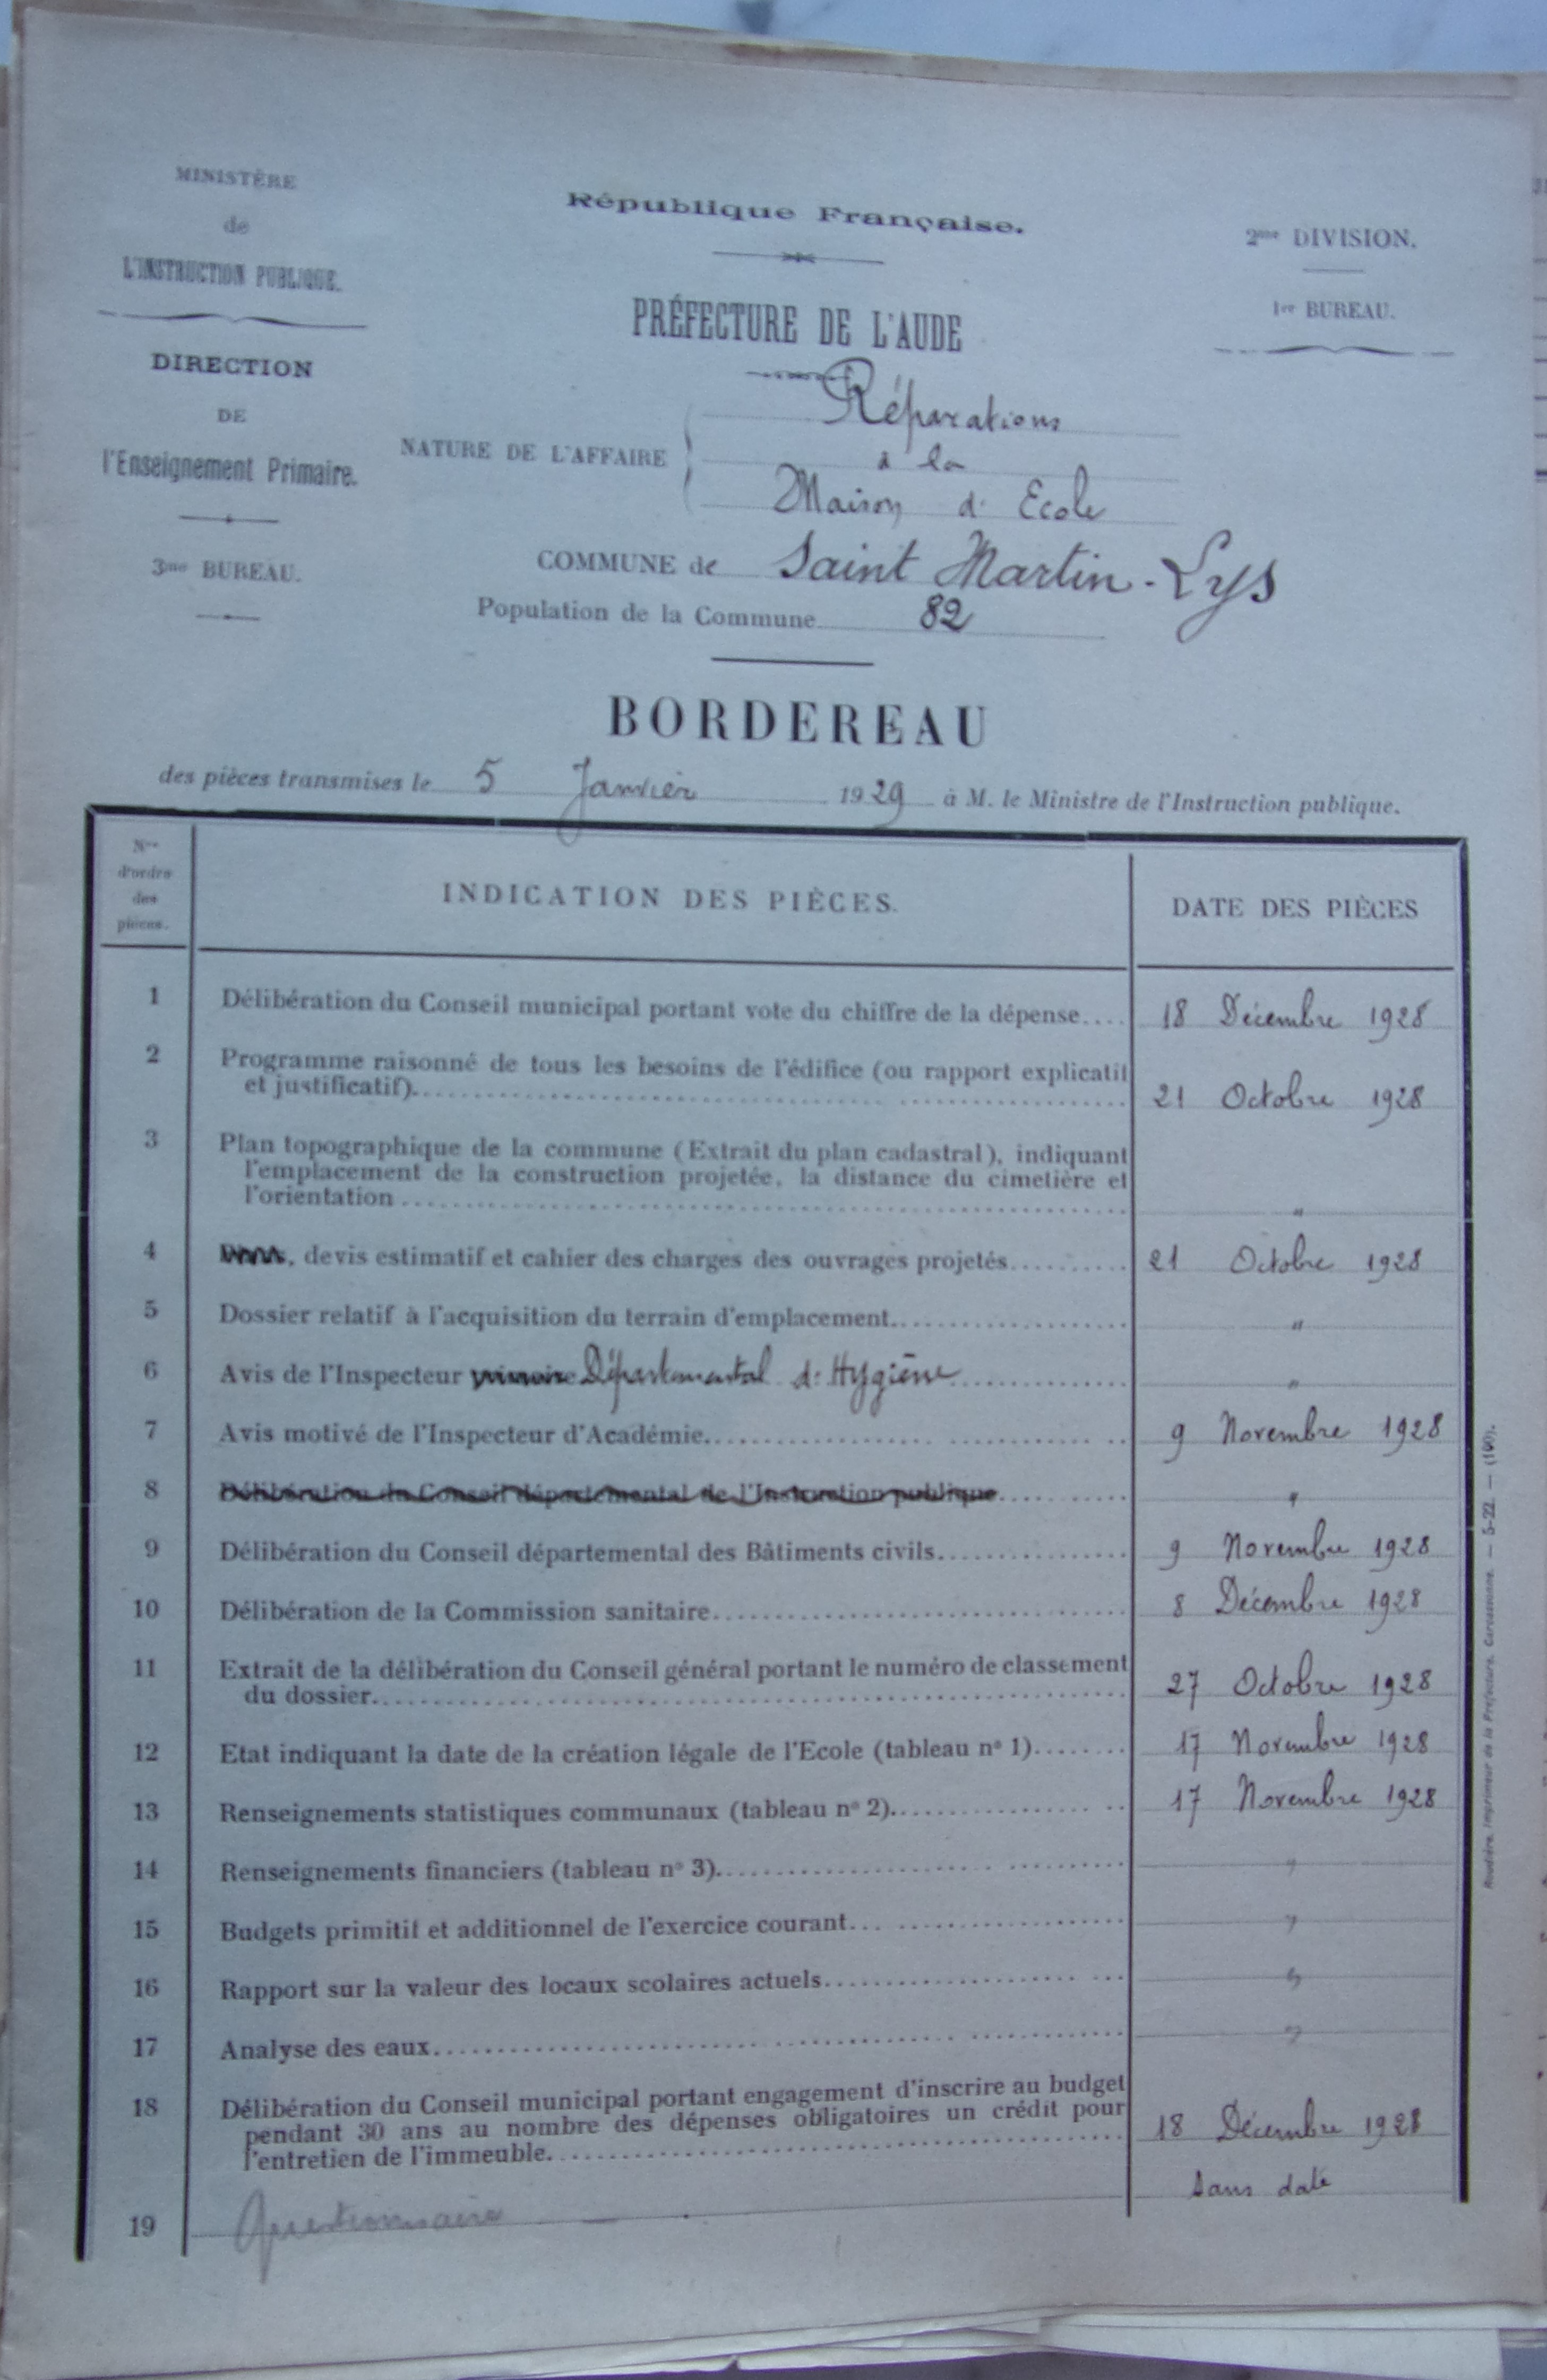 MINISTÈRE
de
L'INSTRUCTION PUBLIQUE.
DIRECTION
DE
l'Enseignement Primaire.
3me BUREAU.
République Française.
PRÉFECTURE DE L'AUDE
2me DIVISION.
1er BUREAU.
NATURE DE L'AFFAIRE
Réparations
à la
Maison d' Ecole
COMMUNE de Saint Martin-Lys
Population de la Commune 82
BORDEREAU
des pièces transmises le 5 Janvier 1929 à M. le Ministre de l'Instruction publique.
Nos
d'ordre
des
pièces.
INDICATION DES PIÈCES.
DATE DES PIÈCES
1 Délibération du Conseil municipal portant vote du chiffre de la dépense.... 18 Décembre 1928
2 Programme raisonné de tous les besoins de l'édifice (ou rapport explicatif
et justificatif) 21 Octobre 1928
3 Plan topographique de la commune (Extrait du plan cadastral), indiquant
l'emplacement de la construction projetée, la distance du cimetière et
l'orientation "
4 Plans, devis estimatif et cahier des charges des ouvrages projetés 21 Octobre 1928
5 Dossier relatif à l'acquisition du terrain d'emplacement "
6 Avis de l'Inspecteur primaire Départemental d'Hygiène "
7 Avis motivé de l'Inspecteur d'Académie 9 Novembre 1928
8 Délibération du Conseil départemental de l'Instruction publique "
9 Délibération du Conseil départemental des Bâtiments civils 9 Novembre 1928
10 Délibération de la Commission sanitaire 8 Décembre 1928
11 Extrait de la délibération du Conseil général portant le numéro de classement
du dossier 27 Octobre 1928
12 Etat indiquant la date de la création légale de l'Ecole (tableau n° 1) 17 Novembre 1928
13 Renseignements statistiques communaux (tableau n° 2) 17 Novembre 1928
14 Renseignements financiers (tableau n° 3) "
15 Budgets primitif et additionnel de l'exercice courant "
16 Rapport sur la valeur des locaux scolaires actuels "
17 Analyse des eaux "
18 Délibération du Conseil municipal portant engagement d'inscrire au budget
pendant 30 ans au nombre des dépenses obligatoires un crédit pour
l'entretien de l'immeuble 18 Décembre 1928
19 Questionnaire sans date
Roudière, Imprimeur de la Préfecture, Carcassonne. — 5-22 — (100).